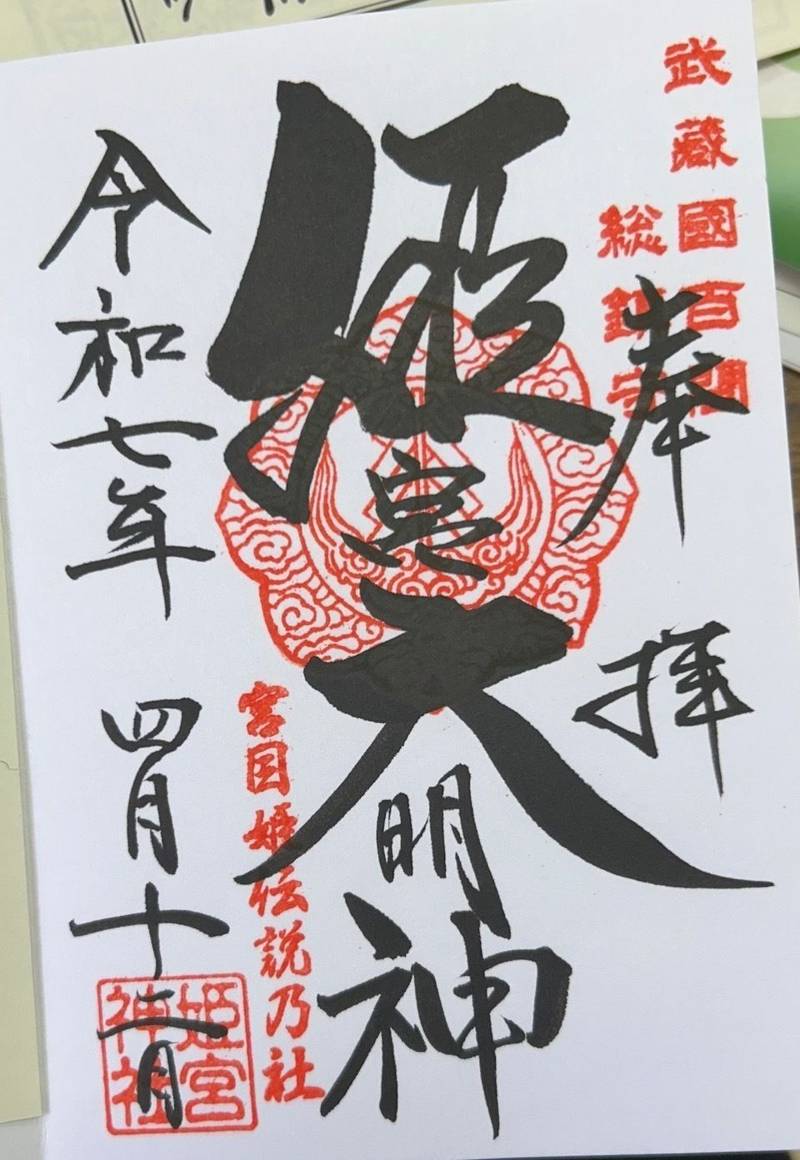 武藏國百間
総鎮守
奉拝
姫宮大明神
宮目姫伝説乃社
令和七年 四月十二日
姫宮
神社